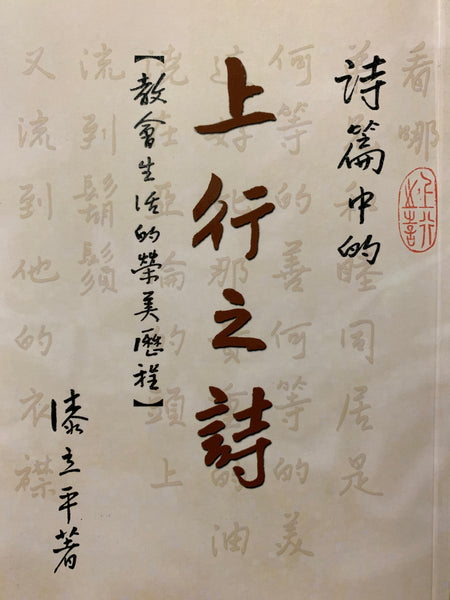 看哪
詩篇中的
和睦同居是
何等的善何等的美
上行之詩
這好那貴的油
【教會生活的榮美歷程】
澆在亞倫的頭上
流到鬍鬚
漆立平著
又流到他的衣襟